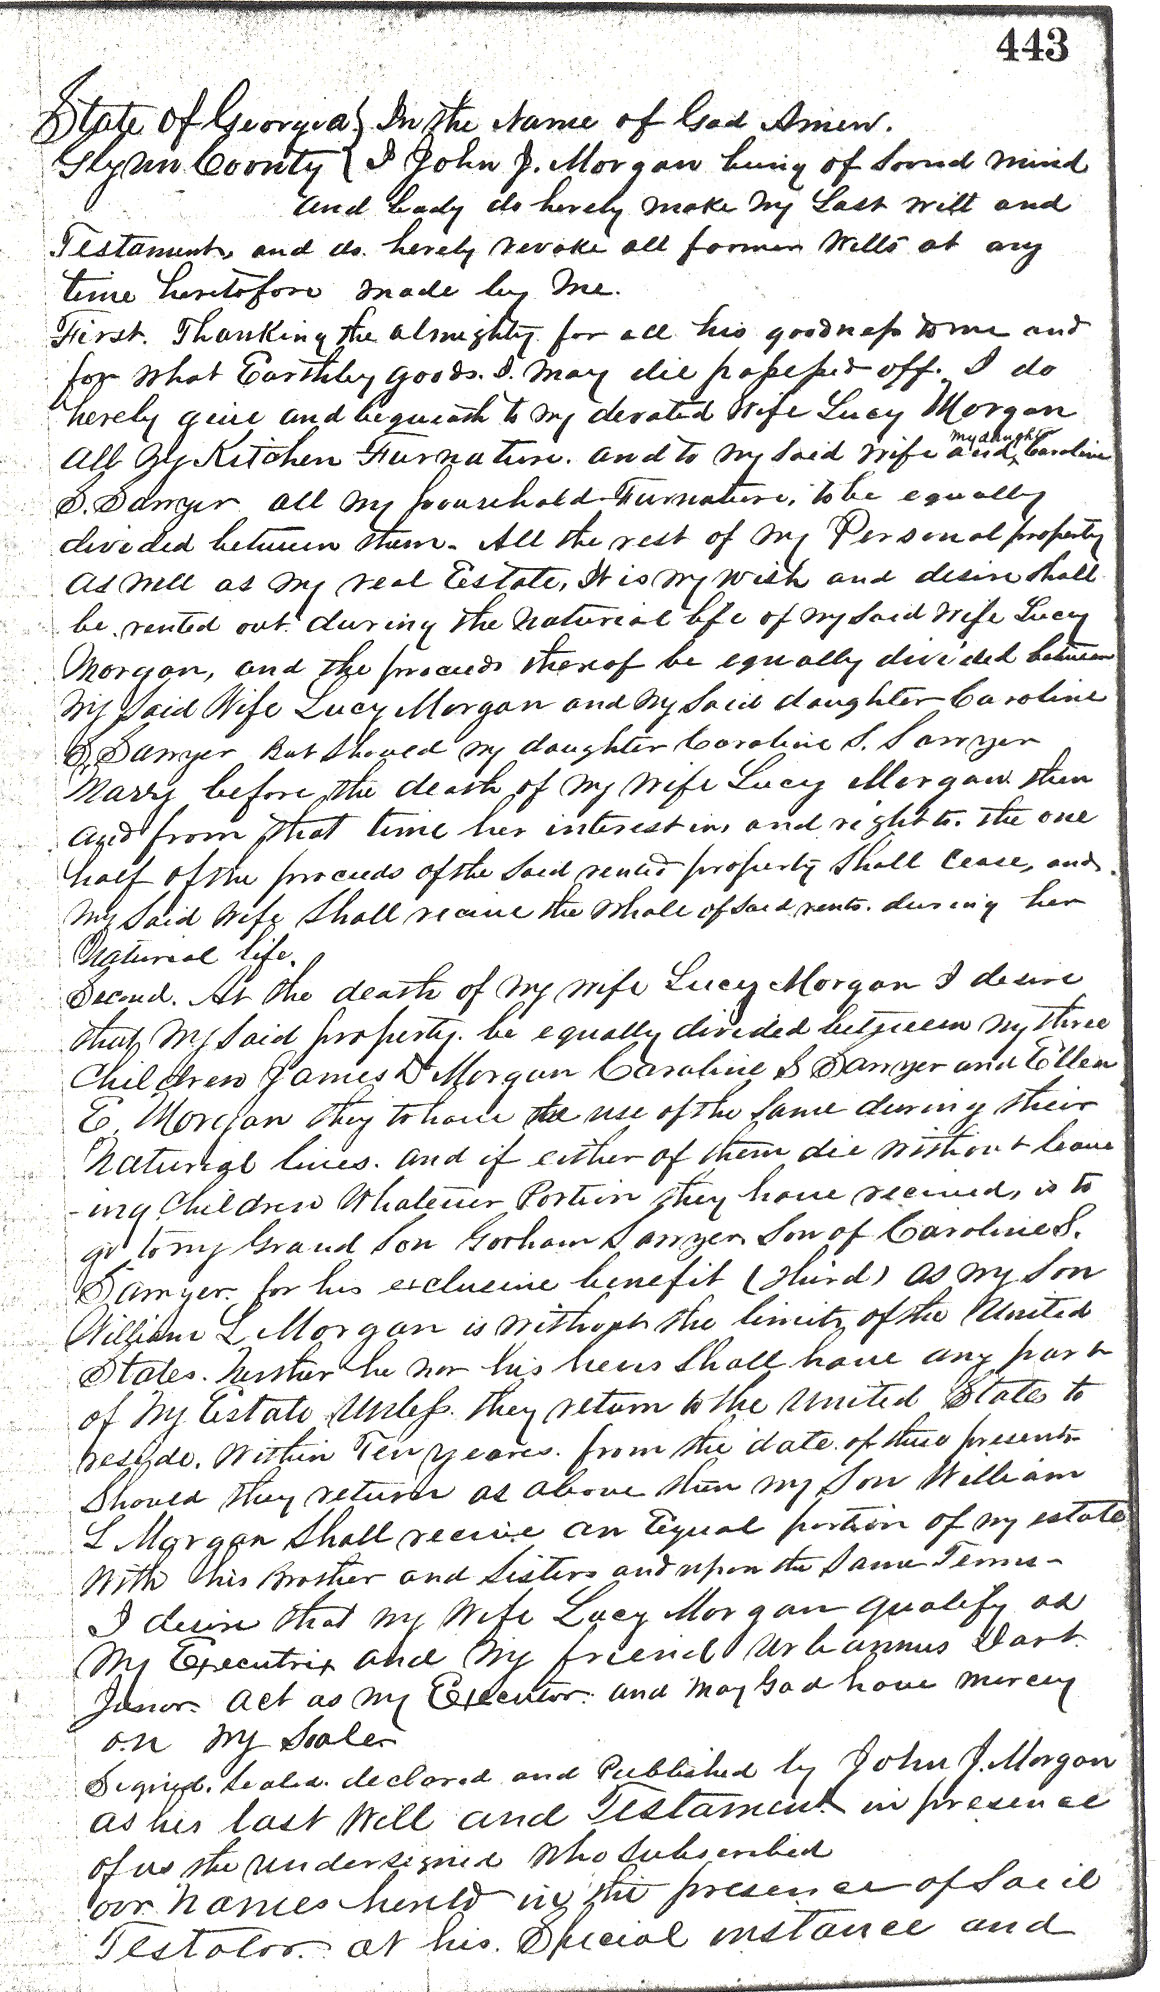 443
State of Georgia } In the Name of God Amen.
Glynn County } I John J. Morgan being of Sound mind
and body do hereby make my Last will and
Testament, and do hereby revoke all former Wills at any
time heretofore made by Me.
First. Thanking the almighty for all his goodness to me and
for what Earthley goods. I. may die possessed off. I do
hereby give and bequeath to my devoted Wife Lucy Morgan
All My Kitchen Furnature. and to my Said Wife and my daughter Caroline
S. Sawyer all my household Furnature, to be equally
divided between them. All the rest of my Personal property
as well as my real Estate, It is my wish and desire Shall
be rented out during the naturial life of my Said Wife Lucy
Morgan, and the proceeds thereof be equally divided between
my Said Wife Lucy Morgan and my Said daughter Caroline
S. Sawyer But Should my daughter Caroline S. Sawyer
Marry before the death of my Wife Lucy Morgan then
and from that time her interest in, and right to. the one
half of the proceeds of the Said rented property Shall Cease, and
my Said Wife Shall receive the Whole of Said rents. during her
naturial life.
Second. At the death of my wife Lucy Morgan I desire
that my Said property. be equally divided between my three
Children James D Morgan Caroline S Sawyer and Ellen
E. Morgan they to have the use of the Same during their
naturial lives. and if either of them die without leave
-ing Children Whatever Portion they have received, is to
go to my Grand Son Gorham Sawyer Son of Caroline S.
Sawyer. for his exclusive benefit (third) As my Son
William L Morgan is without the limits of the United
States. Neither he nor his heirs Shall have any part
of My Estate Unless. they return to the United States to
reside. Within Ten yeares. from the date of these presents
Should they return as above then my Son William
L Morgan Shall receive an Equal portion of my estate
With his Brother and Sisters and upon the Same Terms-
I desire that my Wife Lucy Morgan qualify as
My Executrix and My friend Urbannus Dart
Junor. Act as my Executor. and May God have mercy
on My Soale
Signed. Sealed. declared and Published by John J. Morgan
as his last Will and Testament in presence
of us the undersigned Who Subscribed
our names hereto in the presence of Said
Testator. at his. Special instance and